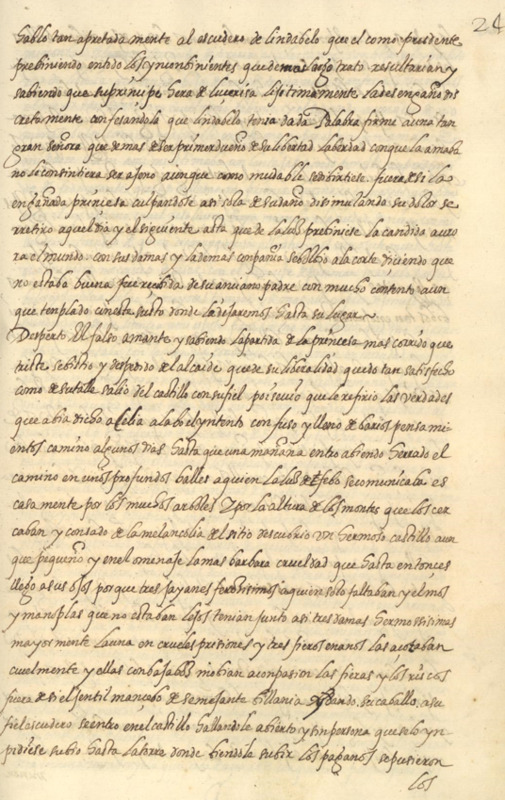 24
hablo tan apretada mente al escudero de lindabelo que el como prudente
prebiniendo en todo los ynconbinientes que de mas largo trato resultarian y
sabiendo que su principe hera de lucerisa lejitimamente la desengaño dis
cretamente confesandola que lindabelo tenia dada palabra firme a una tan
gran señora que demas de ser primor dueño de su libertad la berdad con que la amaba
no se consintiera ser ajeno aunque como mudable se dibirtiese fuera de si la
engañada princesa culpandose a si sola de su daño disimulando su dolor se
retiro aquel dia y el siguiente asta que de la luz prebiniese la candida auro
ra el mundo con sus damas y la demas compañia se bolbio a la corte diciendo que
no estaba buena fue recibida de su anciano padre con mucho contento aun
que templado con este susto donde la dejaremos hasta su lugar
Desperto el falso amante y sabiendo la partida de la princesa mas corrido que
triste se bistio y despidio del alcaide que de su liberalidad quedo tan satisfecho
como de su talle salio del castillo con su fiel poisenio que le refirio las verdades
que abia dicho a Celia a la bolbio yntento confuso y lleno de barios pensami
entos camino algunos dias hasta que una mañana entro abiendo herrado el
camino en unos profundos balles a quien la luz de febo se comunicaba es
casamente por los muchos arboles y por la altura de los montes que los cer
caban y cansado de la melancolia del sitio descubrio un hermoso castillo aun
que pequeño y en el omenaje la mas barbara crueldad que hasta entonces
llego a sus ojos porque tres jayanes ferocisimos a quien solo faltaban yelmos
y manoplas que no estaban lejos tenian junto a si tres damas hermosisimas
mayormente la una en crueles prisiones y tres fieros enanos las açotaban
cruelmente y ellas con bajas boces mobian a conpasion las fieras y los riscos
fuera de si el jentil mancebo de semejante billania dando su caballo a su
fiel escudero se entro en el castillo hallandole abierto y sin persona que se lo yn
pidiese subio hasta la torre donde biendole subir los paganos se pusieron
los